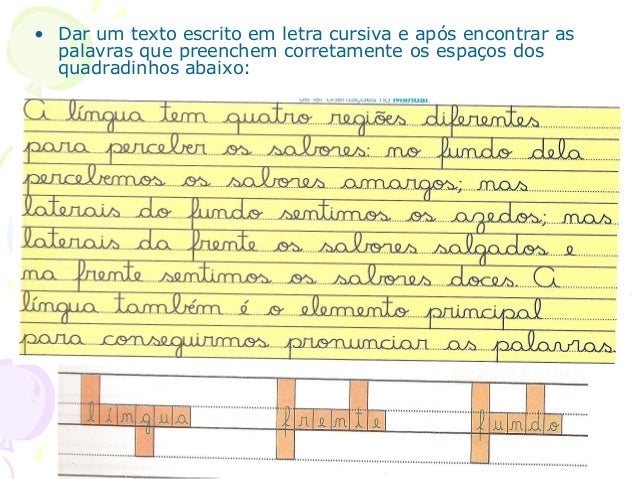 • Dar um texto escrito em letra cursiva e após encontrar as
palavras que preenchem corretamente os espaços dos
quadradinhos abaixo:
no Manual.
A língua tem quatro regiões diferentes
para perceber os sabores: no fundo dela
percebemos os sabores amargos; nas
laterais do fundo sentimos os azedos; nas
laterais da frente os sabores salgados e
na frente sentimos os sabores doces. A
língua também é o elemento principal
para conseguirmos pronunciar as palavras.
língua frente fundo